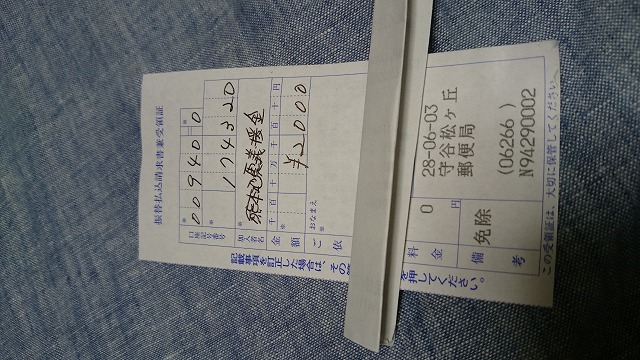 振替払込請求書兼受領証
口座記号番号
00940 0
174320
加入者名
熊本地震義援金
金額
千百十万千百十円
¥2000
ご依
おなまえ
様
料金
0
円
28-06-03
守谷松ヶ丘
郵便局
(06266 )
N94290002
備考
免除
記載事項を訂正した場合は、その
を押してください。
この受領証は、大切に保管してください。